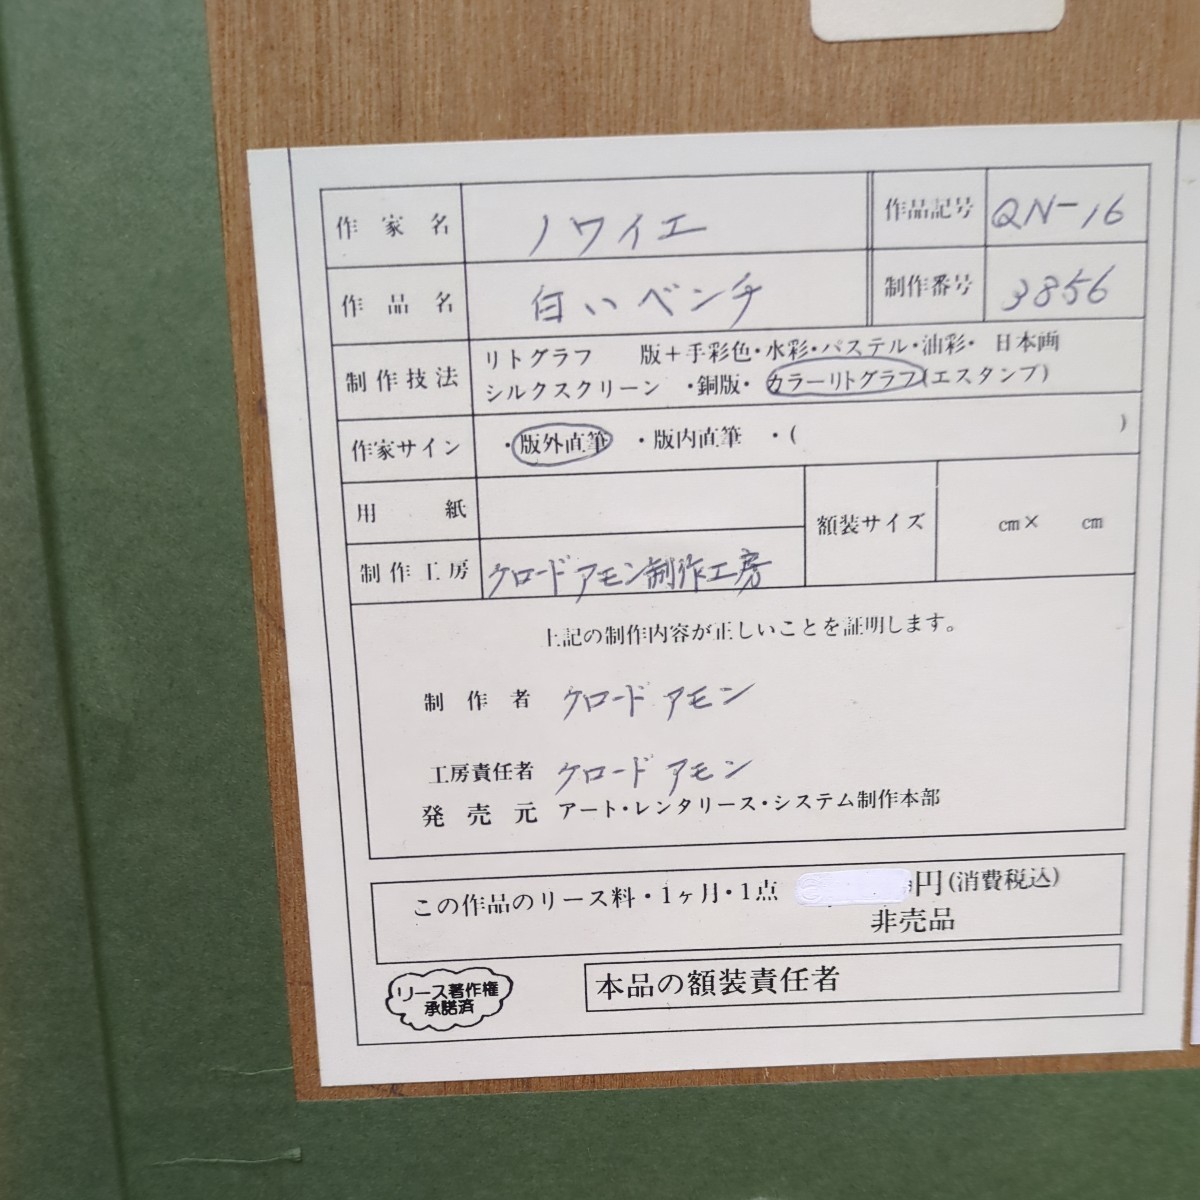 作家名 ノワイエ 作品記号 QN-16
作品名 白いベンチ 制作番号 3856
制作技法 リトグラフ 版+手彩色・水彩・パステル・油彩・ 日本画
シルクスクリーン ・銅版・ カラーリトグラフ(エスタンプ)
作家サイン ・版外直筆 ・版内直筆 ・( )
用紙 額装サイズ cm× cm
制作工房 クロードアモン制作工房
上記の制作内容が正しいことを証明します。
制作者 クロード アモン
工房責任者 クロード アモン
発売元 アート・レンタリース・システム制作本部
この作品のリース料・1ヶ月・1点 円(消費税込)
非売品
リース著作権
承諾済
本品の額装責任者